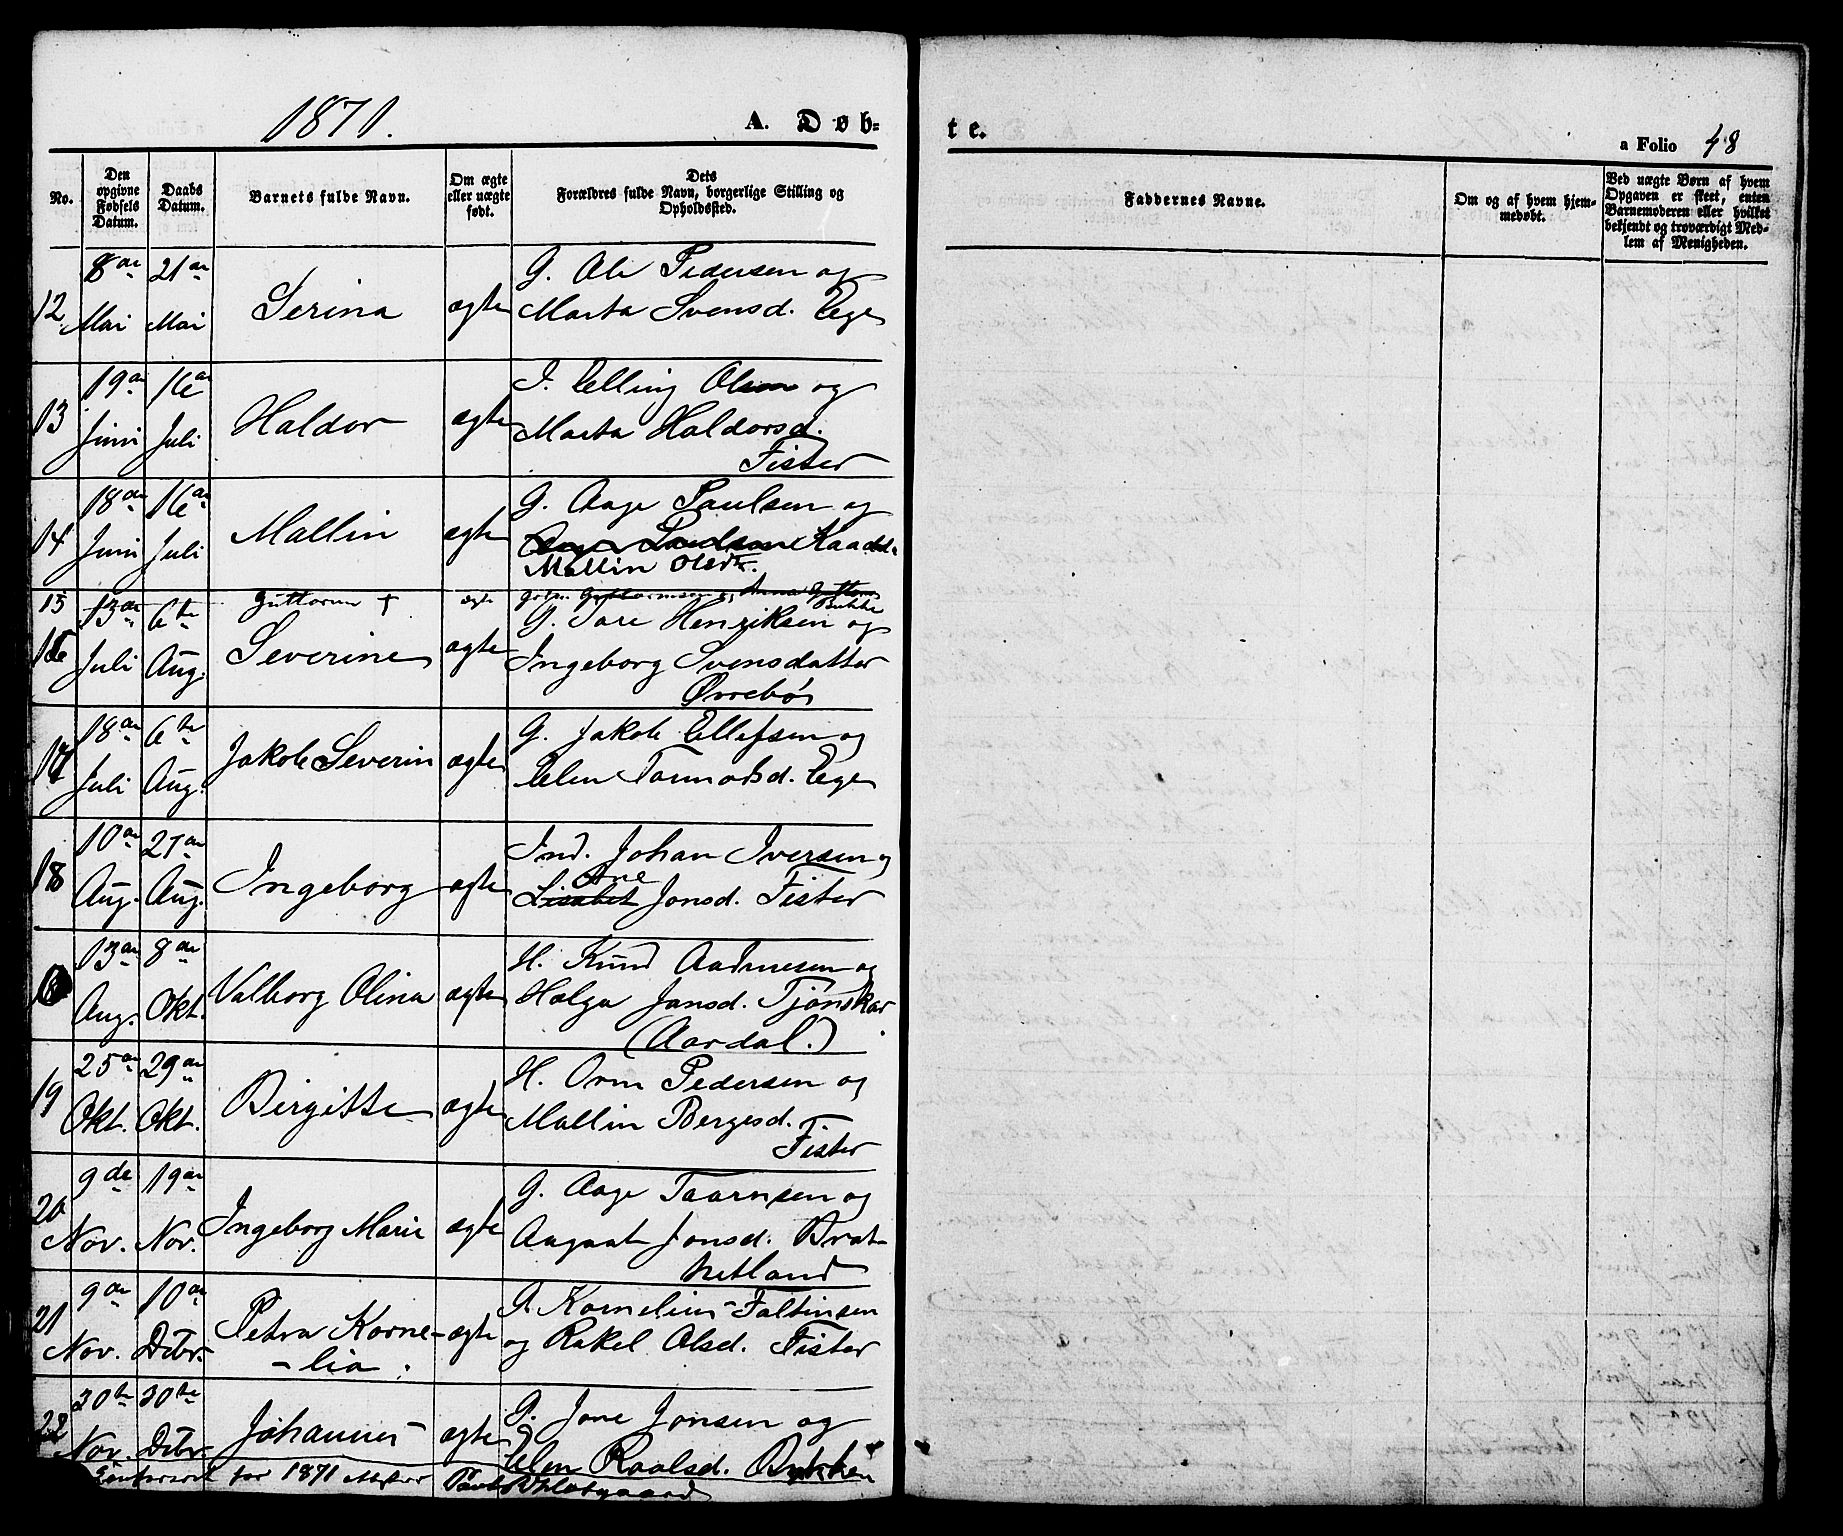 1871.
A. Døb=
te.
a Folio 48
No.
Den opgivne Fødsels Datum.
Daabs Datum.
Barnets fulde Navn.
Om ægte eller uægte født.
Dets Forældres fulde Navn, borgerlige Stilling og Opholdssted.
Faddernes Navne.
Om og af hvem hjemmedøbt.
Ved uægte Børn af hvem Opgaven er skeet, enten Barnemoderen eller hvilket bekjendt og troværdigt Medlem af Menigheden.
12 8de Mai 21de Mai Serina ægte G. Ole Pedersen og
Marta Svensd. Ege
13 19de Juni 16de Juli Haldor ægte I. Elling Olsen og
Marta Haldorsd.
Fister
14 18de Juni 16de Juli Mallin ægte G. Aage Paulsen og
Mallin Olsdtr.
15 Guttorm + ægte
Bukke
16 13de Juli 6te Aug. Severine ægte G. Tore Henriksen og
Ingeborg Svensdatter
Ørrebø
17 18de Juli 6te Aug. Jakob Severin ægte G. Jakob Ellefsen og
Elen Tormodsd. Ege
18 10de Aug. 27de Aug. Ingeborg ægte Ind. Johan Iversen og
Ane
Lisabet Jonsd. Fister
13de Aug. 8de Okt. Valborg Olina ægte H. Knud Aadnesen og
Helga Jansd. Tjønskar
(Aardal.)
19 25de Okt. 29de Okt. Birgitte ægte H. Orm Pedersen og
Mallin Bergesd.
Fister
20 9de Nov. 19de Nov. Ingeborg Marie ægte G. Aage Taarnsen og
Aagaat Jonsd. Brat-
hetland
21 9de Nov. 10de Debr. Petra Korne- ægte P. Kornelius Faltinsen
-lia. og Rakel Olsd. Fister
22 30te Nov. 30te Debr. Johannes ægte P. Jone Jonsen og
Elen Roalsd. Bukken
for 1871